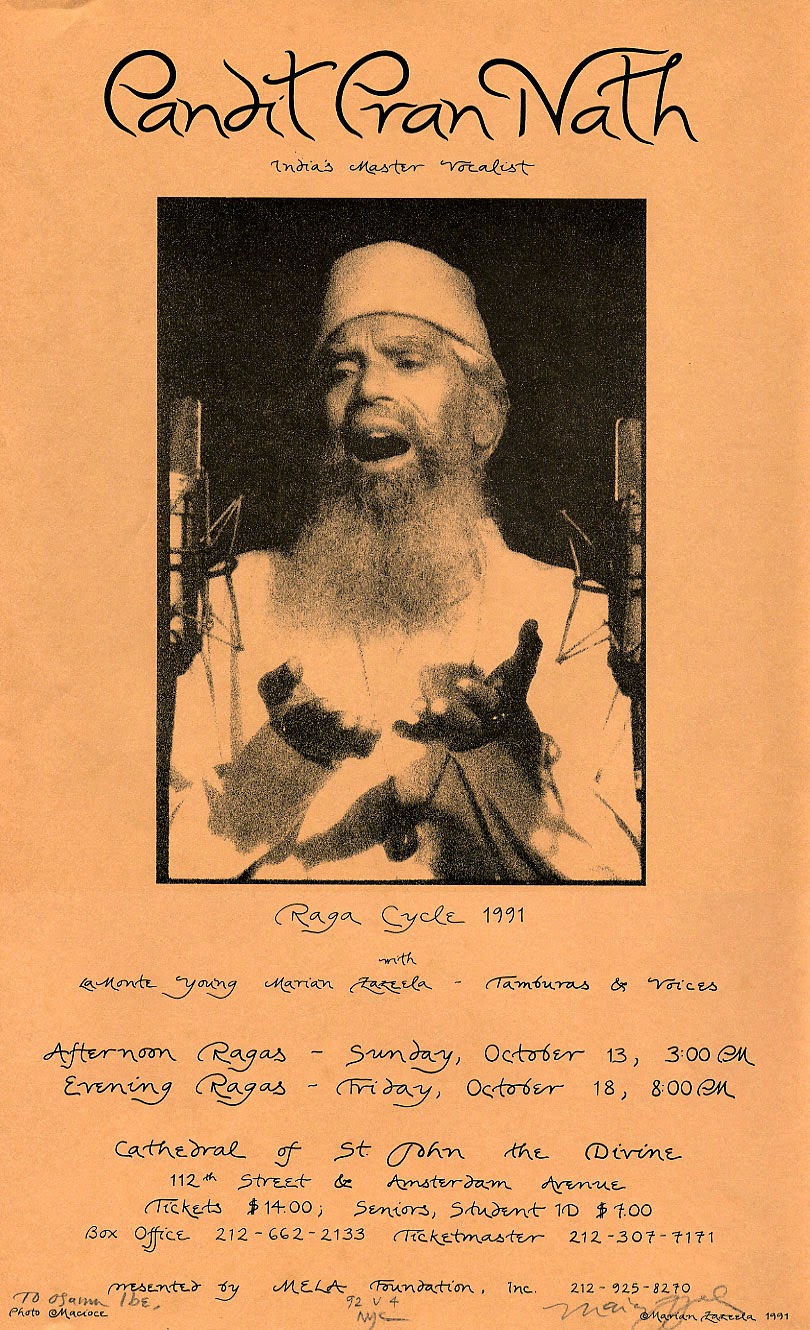 Pandit Pran Nath
India's Master Vocalist
Raga Cycle 1991
with
La Monte Young Marian Zazeela - Tamburas & Voices
Afternoon Ragas - Sunday, October 13, 3:00 PM
Evening Ragas - Friday, October 18, 8:00 PM
Cathedral of St. John the Divine
112th Street & Amsterdam Avenue
Tickets $14.00; Seniors, Student ID $7.00
Box Office 212-662-2133 Ticketmaster 212-307-7171
presented by MELA Foundation, Inc. 212-925-8270
To
92 V 4
NYC
Photo ©Macioce
©Marian Zazeela 1991